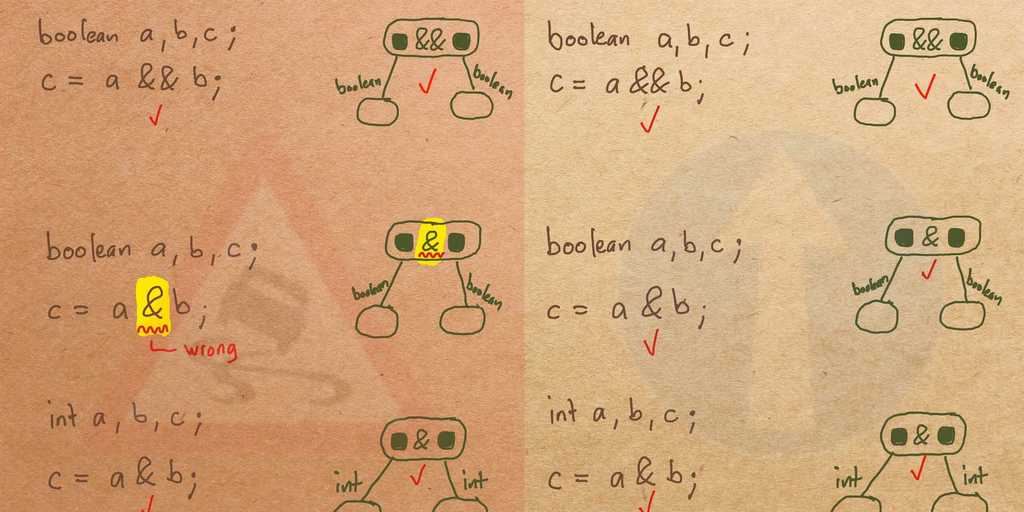 boolean a, b, c ;
c = a && b ;
&&
boolean boolean
boolean a, b, c ;
c = a & b ;
wrong
&
boolean boolean
int a, b, c ;
c = a & b ;
&
int int
boolean a, b, c ;
c = a && b ;
&&
boolean boolean
boolean a, b, c ;
c = a & b ;
&
boolean boolean
int a, b, c ;
c = a & b ;
&
int int